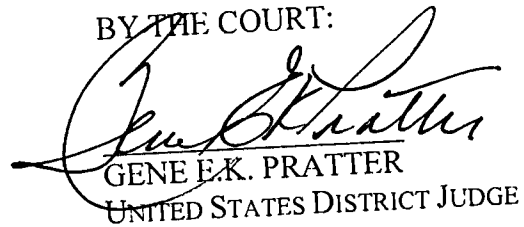 BY THE COURT:
Gene E.K. Pratter
GENE E.K. PRATTER
UNITED STATES DISTRICT JUDGE